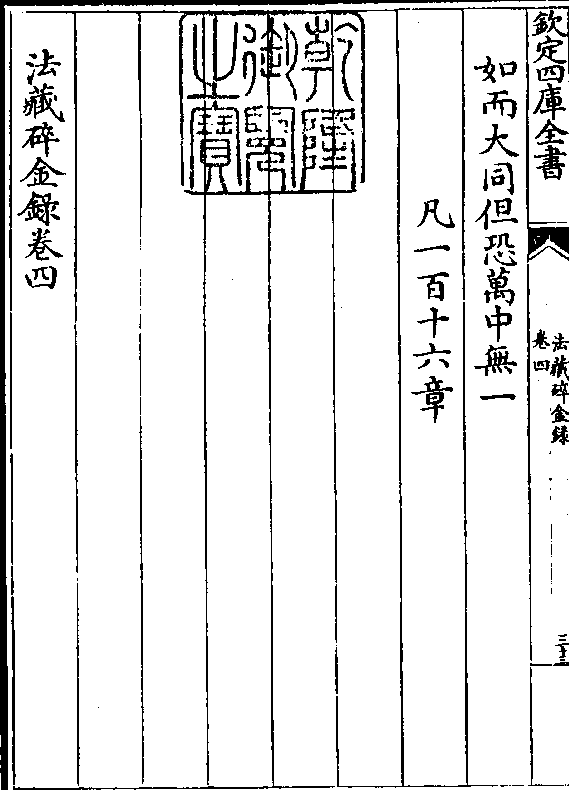 欽定四庫全書
法藏碎金錄
卷四
三十三
如而大同但恐萬中無一
凡一百十六章
乾隆御覽之寶
法藏碎金錄卷四